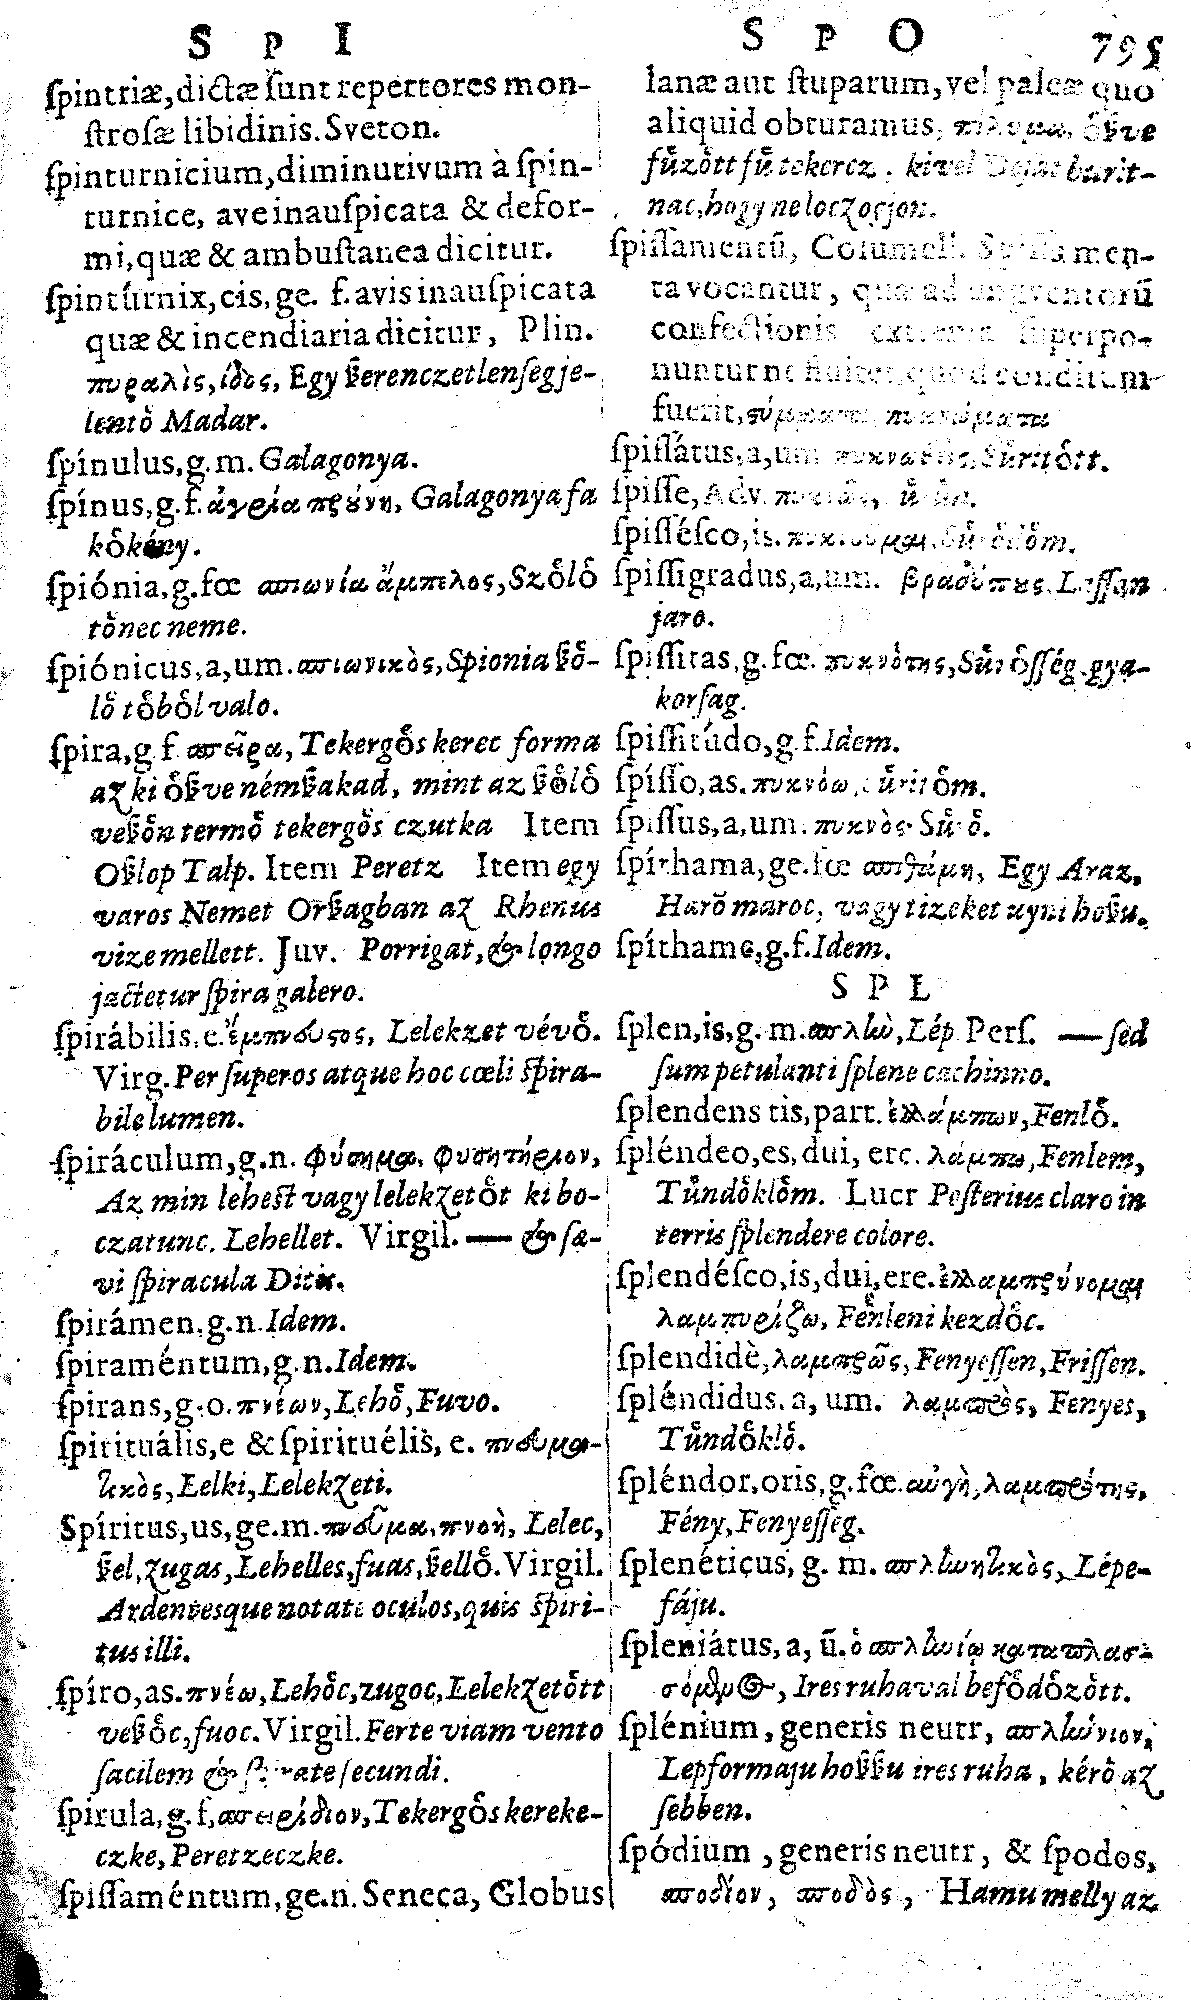 S P I
S P O 795
ſpintriæ, dictæ ſunt repertores mon-
ſtroſæ libidinis. Sveton.
ſpinturnicium, diminutivum à ſpin-
turnice, ave inauſpicata & defor-
mi, quæ & ambuſtanea dicitur.
ſpintúrnix, cis, ge. f. avis inauſpicata
quæ & incendiaria dicitur, Plin.
πυραλὶς, ίδος, Egy ßerenczetlenſeg je-
lentȍ Madar.
ſpínulus, g. m. Galagonya.
ſpínus, g. f. ἀγρία προύνη, Galagonya fa
kȍkény.
ſpiónia, g. fœ σπιωνία ἄμπελος, Szȍlȍ
tȍnec neme.
ſpiónicus, a, um. σπιωνικὸς, Spionia ßȍ-
lȍ tȍbȍl valo.
ſpira, g f σπεῖρα, Tekergȍs kerec forma
az ki ȍßve némßakad, mint az ßȍlȍ
veßȍn termȍ tekergȍs czutka Item
Oßlop Talp. Item Peretz Item egy
varos Nemet Orßagban az Rhenus
vize mellett. Juv. Porrigat, & longo
jactetur ſpira galero.
ſpirábilis, e. ἔμπνευστος, Lelekzet vévȍ.
Virg. Per ſuperos atque hoc cœli ſpira-
bile lumen.
ſpiráculum, g. n. φύσημα, φυσητήριον,
Az min leheſt vagy lelekzetȍt ki bo-
czatunc. Lehellet. Virgil. — & ſæ-
vi ſpiracula Ditis.
ſpirámen, g. n. Idem.
ſpiraméntum, g. n. Idem.
ſpirans, g. o. πνέων, Lehȍ, Fuvo.
ſpirituális, e & ſpirituélis, e. πνευμα-
τικὸς, Lelki, Lelekzeti.
Spíritus, us, ge. m. πνεῦμα, πνοὴ, Lelec,
ßel, zugas, Lehelles, fuas, ßellȍ. Virgil.
Ardentesque notati oculos, quis ſpiri-
tus illi.
ſpíro, as. πνέω, Lehȍc, zugoc, Lelekzetȍtt
veßȍc, fuoc. Virgil. Ferte viam vento
facilem & ſecundi.
ſpirula, g. f. σπειρίδιον, Tekergȍs kereke-
czke, Peretzeczke.
ſpiſſaméntum, ge. n. Seneca, Globus
lanæ aut ſtuparum, vel paleæ quo
aliquid obturamus, πίλυμα, ȍßve
fűzȍtt fű tekercz, kivel burit-
nac, hogy ne loczoſjon.
ſpiſſamentũ, Columell. Spiſſamen-
ta vocantur, quæ ad ungventorũ
confectionis ſuperpo-
nuntur ne fluitet, quod conditum
fuerit,
ſpiſſátus, a, um Sűritȍtt.
ſpiſſe, Adv.
ſpiſſéſco, is.
ſpiſſigradus, a, um. βραδύπης, Laſſan
jaro.
ſpiſſitas, g. fœ. πυκνότης, Sűrȍſſég, gya-
korſag.
ſpiſſitúdo, g. f. Idem.
ſpíſſo, as. πυκνόω, sűritȍm.
ſpiſſus, a, um. πυκνὸς Sűrȍ.
ſpíthama, ge. fœ σπιθάμη, Egy Araz,
Harȍ maroc, vagy tizeket uyni hoßu.
ſpíthame, g. f. Idem.
S P L
ſplen, is, g. m. σπλὴν, Lép Perſ. — ſed
ſum petulanti ſplene cachinno.
ſplendens tis, part. ἐλλάμπων, Fenlȍ.
ſpléndeo, es, dui, ere. λάμπω, Fenlem,
Tűndȍklȍm. Lucr Peſterius claro in
terris ſplendere colore.
ſplendéſco, is, dui, ere. ἐλλαμπρύνομαι
λαμπυρίζω, Fenleni kezdȍc.
ſplendidè, λαμπρῶς, Fenyeſſen, Friſſen.
ſpléndidus. a, um. λαμπρὸς, Fenyes,
Tűndȍklȍ.
ſpléndor, oris, g. fœ. αὐγὴ, λαμπρότης,
Fény, Fenyeſſeg.
ſplenéticus, g. m. σπληνητικὸς, Lépe-
fáju.
ſpleniátus, a, ũ. ὁ σπληνίῳ καταπλασ-
σόμενος, Ires ruhaval befȍdȍzȍtt.
ſplénium, generis neutr, σπλήνιον,
Lepformaju hoßßu ires ruha, kérȍ az
ſebben.
ſpódium, generis neutr, & ſpodos,
σποδίον, σποδὸς, Hamu melly az